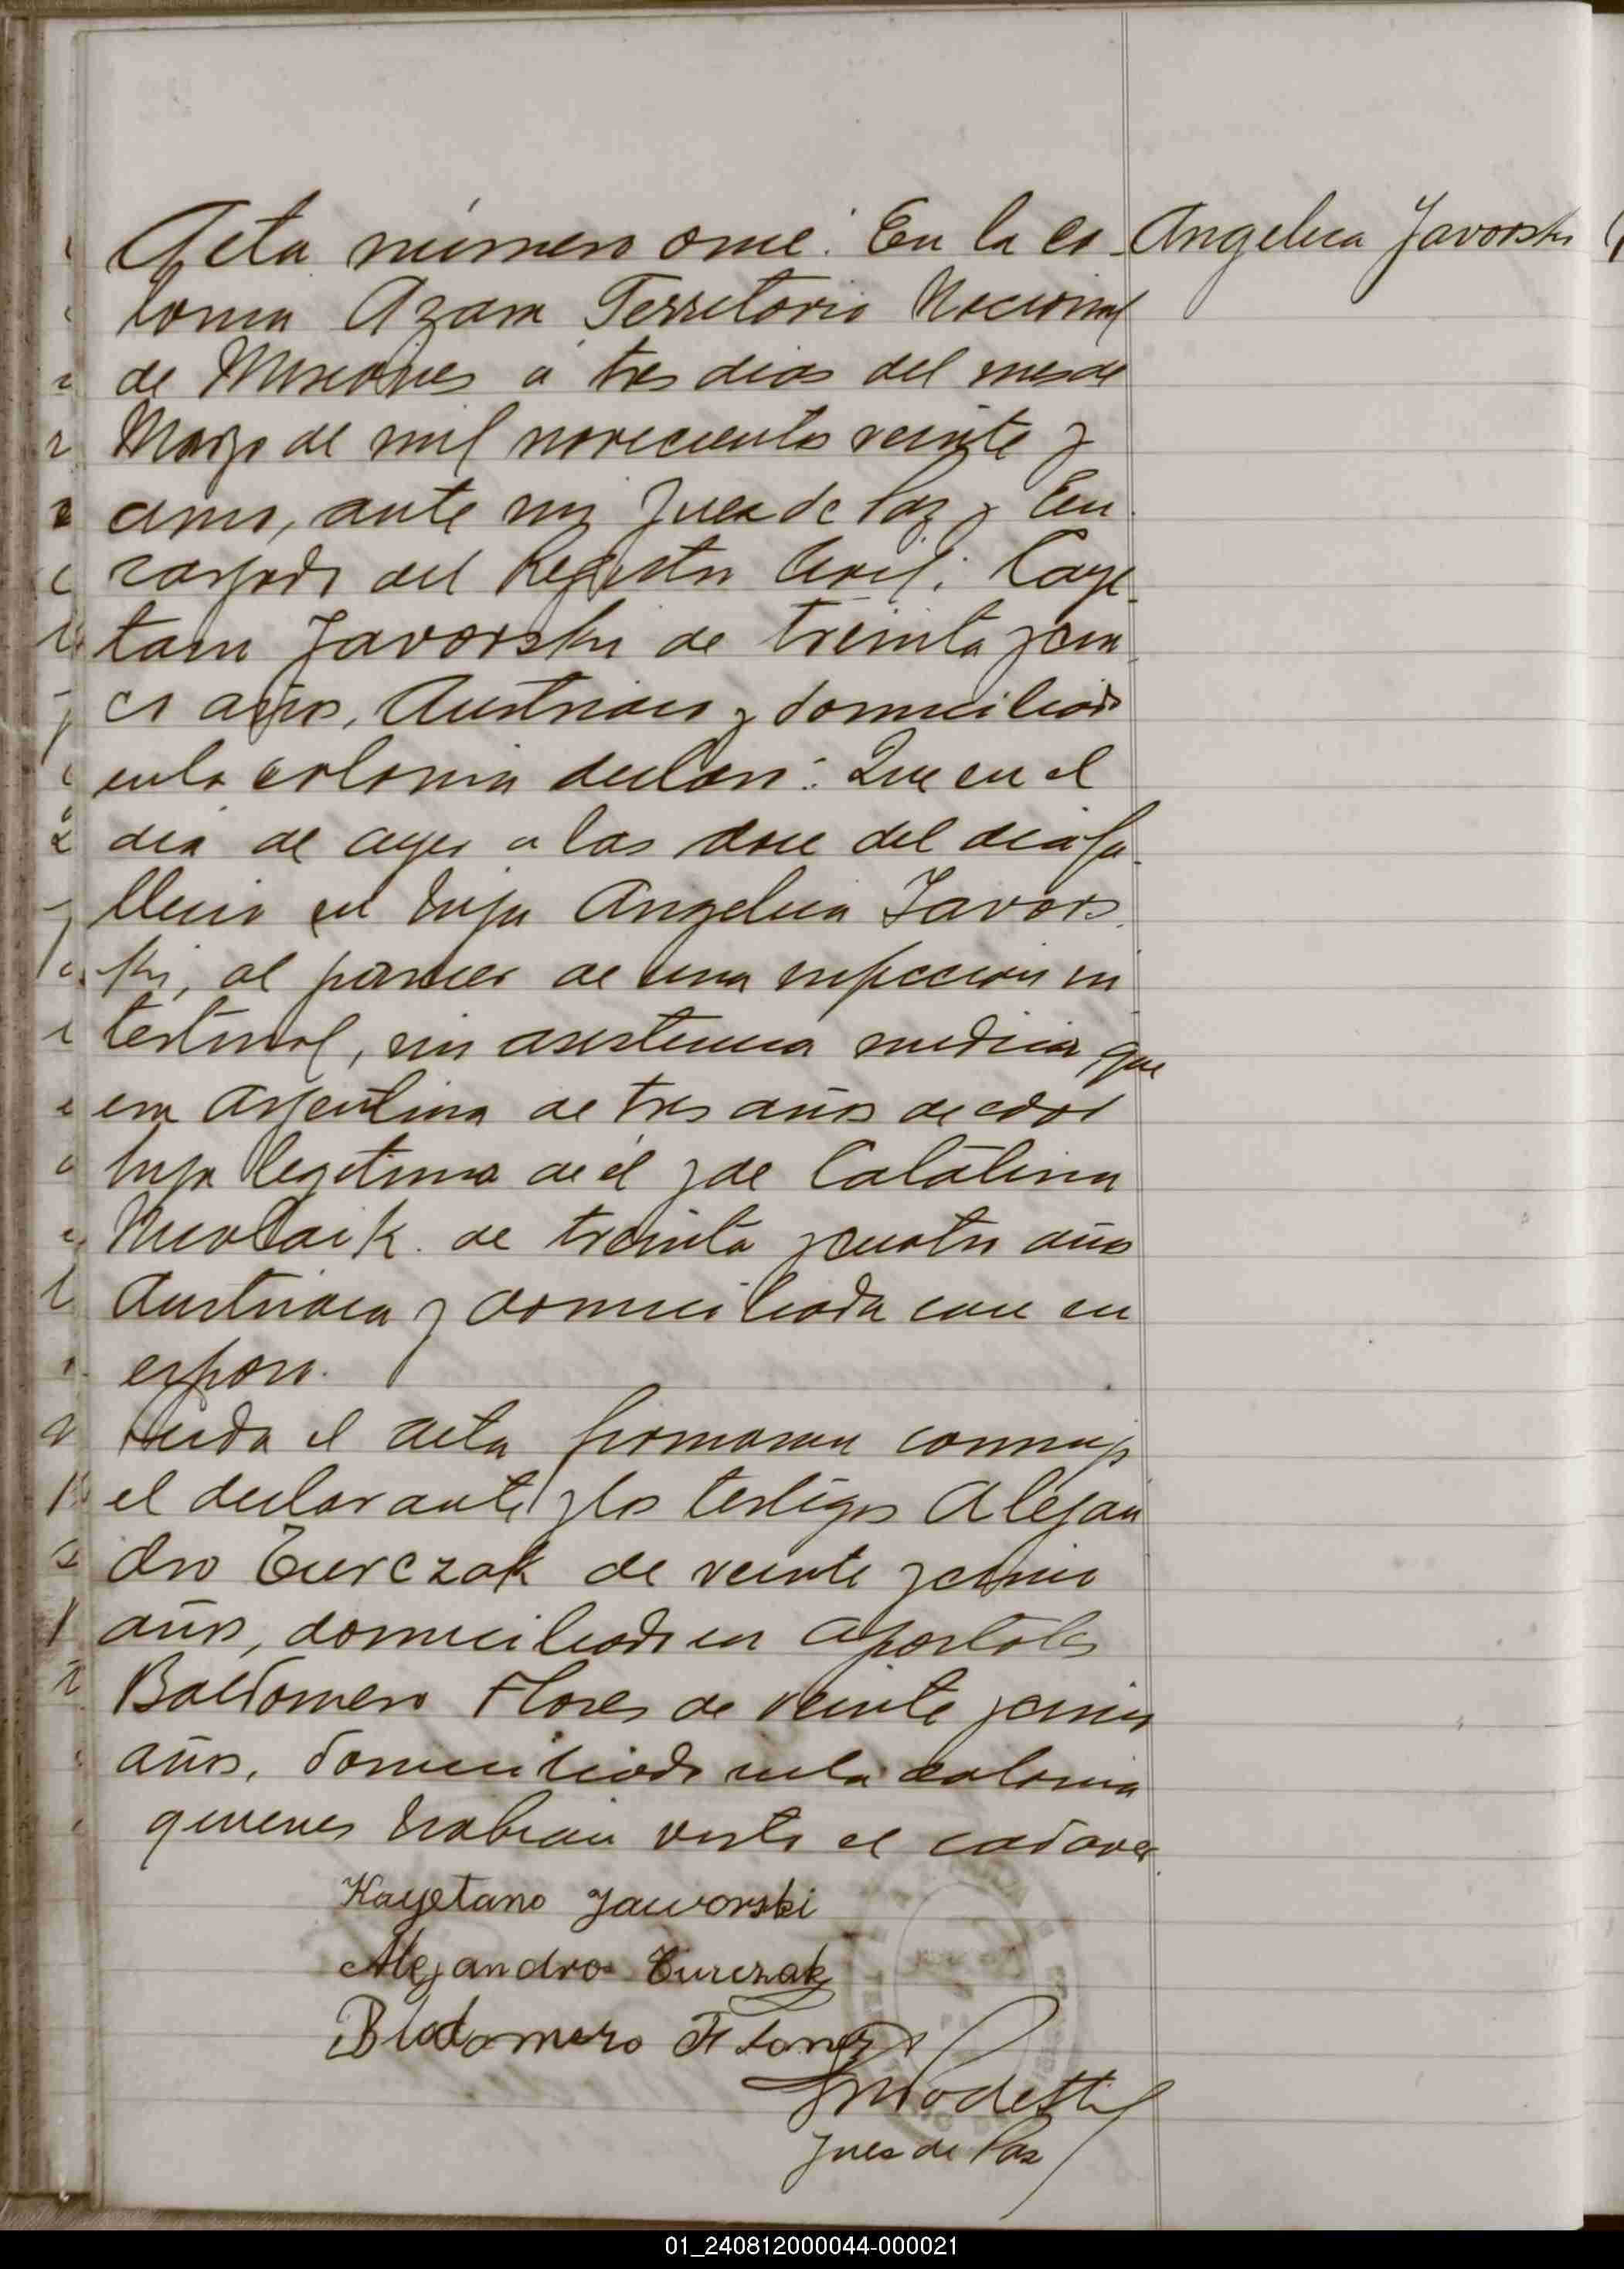 Acta número once. En la co-
Angelica Javorski
lonia Azara Territorio Nacional
de Misiones a tres dias del mes de
Marzo de mil novecientos veinte y
cinco, ante mi Juez de Paz y En
cargado del Registro Civil: Caye-
tano Javorski de treinta y cin
co años, Austriaco y domiciliado
en la colonia declaró: Que en el
dia de ayer a las doce del dia fa-
lleció su hija Angelica Javors-
ki, al parecer de una infeccion in
testinal, sin asistencia medica, que
era Argentina de tres años de edad
hija legitima de él y de Catalina
de treinta y cuatro años
Austriaca y domiciliada con su
esposo.
Leida el acta firmaron conmigo
el declarante y los testigos Alejan
dro Turczak de veinte y cinco
años, domiciliado en Apostoles
Baldomero Flores de veinte y cinco
años, domiciliado en la colonia
quienes habian visto el cadaver.
Kayetano Jaworski
Alejandro Turczak
Bladomero Flores
Juez de Paz
01_240812000044-000021